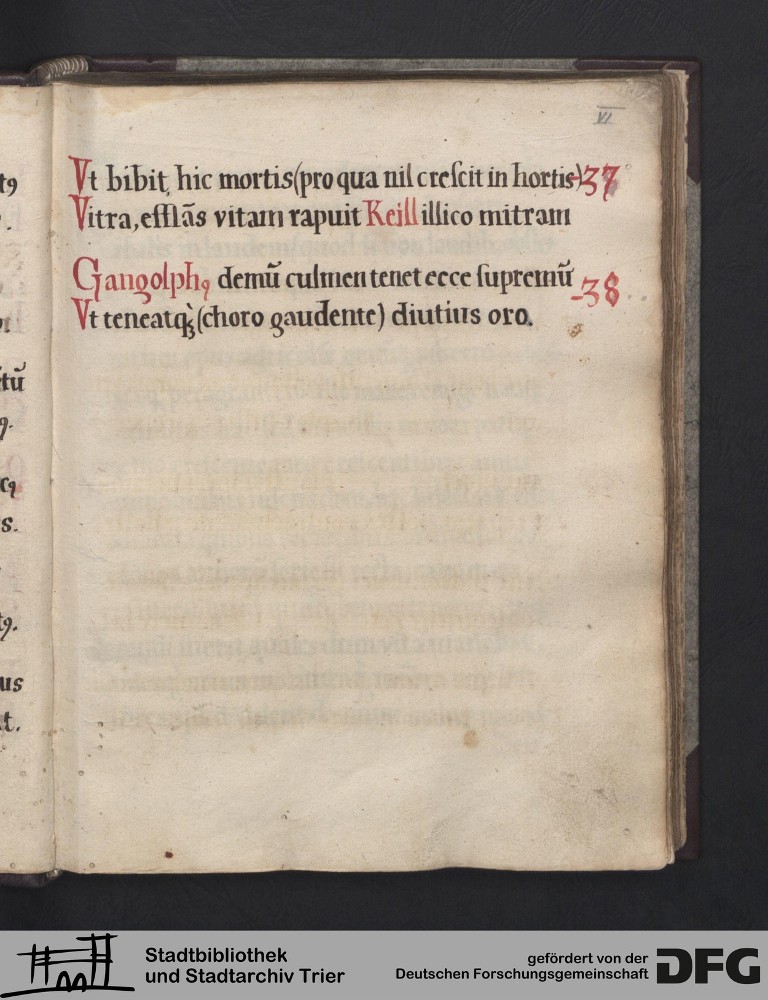 VI
Vt bibit, hic mortis (pro qua nil creſcit in hortis) 37
Vitra, efflãs vitam rapuit Keill illico mitram
Gangolphꝯ demũ culmen tenet ecce ſupremũ 38
Vt teneatqꝫ (choro gaudente) diutius oro.
Stadtbibliothek
und Stadtarchiv Trier
gefördert von der
Deutschen Forschungsgemeinschaft
DFG